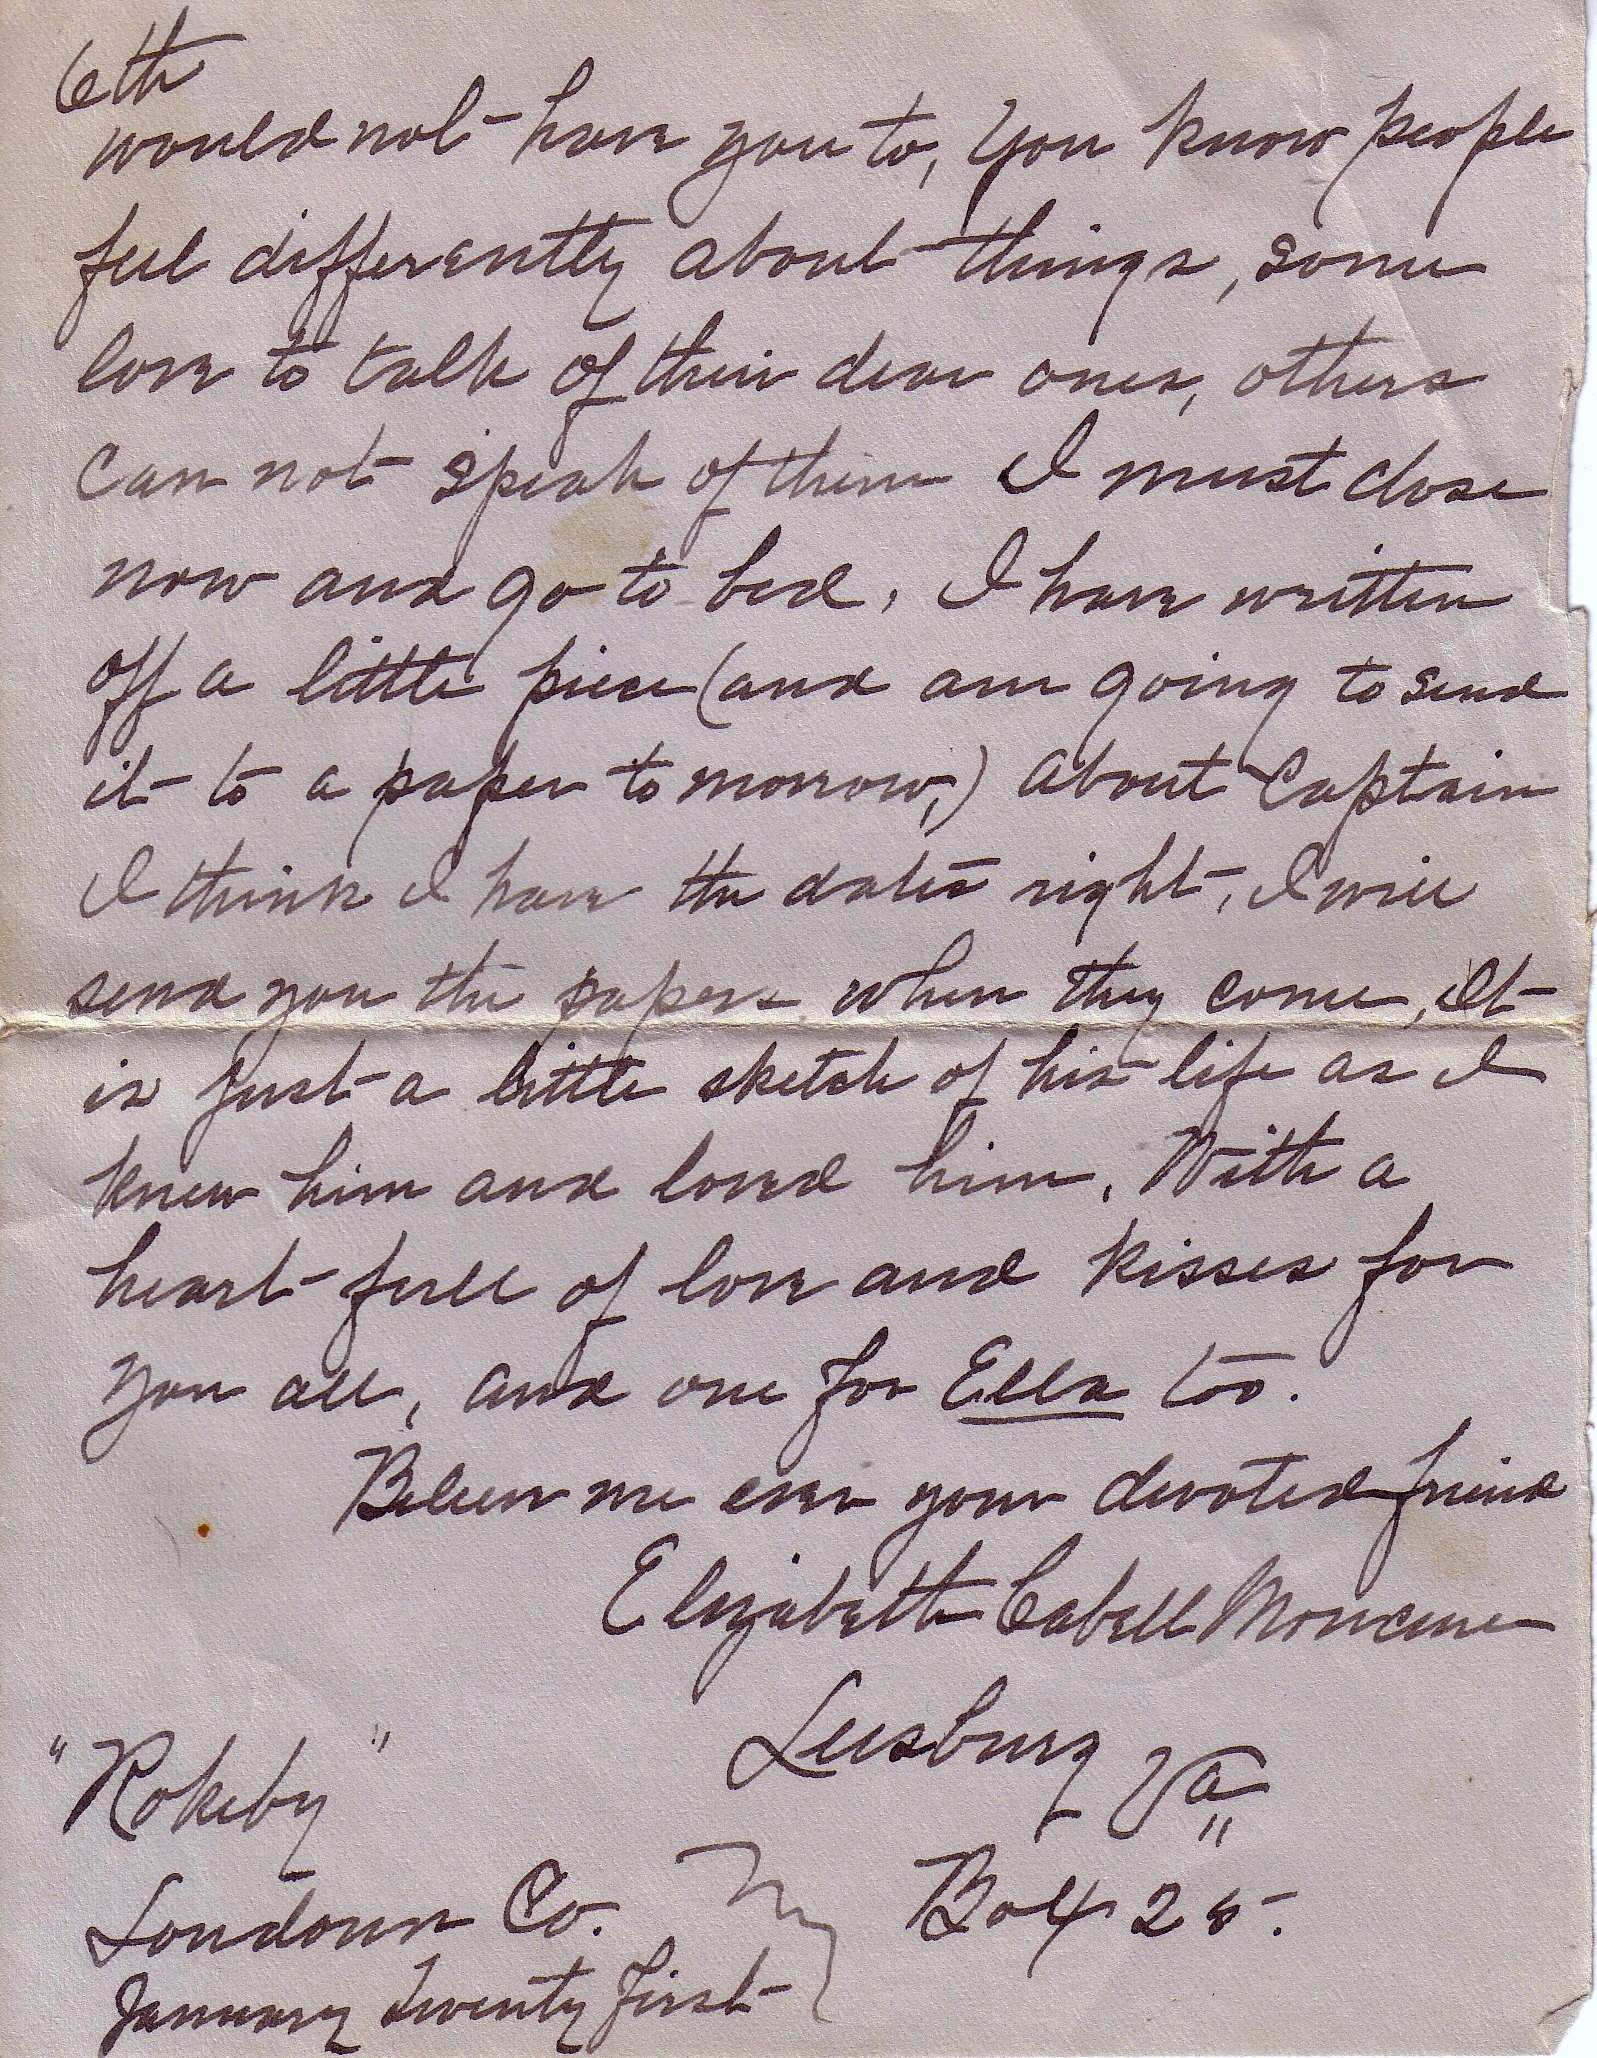 6th
would not have you to, You know people
feel differently about things, some
love to talk of their dear ones, others
can not speak of them I must close
now and go to bed, I have written
off a little piece (and am going to send
it to a paper to morrow,) about Captain
I think I have the dates right, I will
send you the papers when they come, It
is just a little sketch of his life as I
knew him and loved him, With a
heart full of love and kisses for
you all, and one for Ella too.
Believe me ever your devoted friend
Elizabeth Cabell
Leesburg Va
"Rokeby"
Loudoun Co. Box 25.
January twenty first